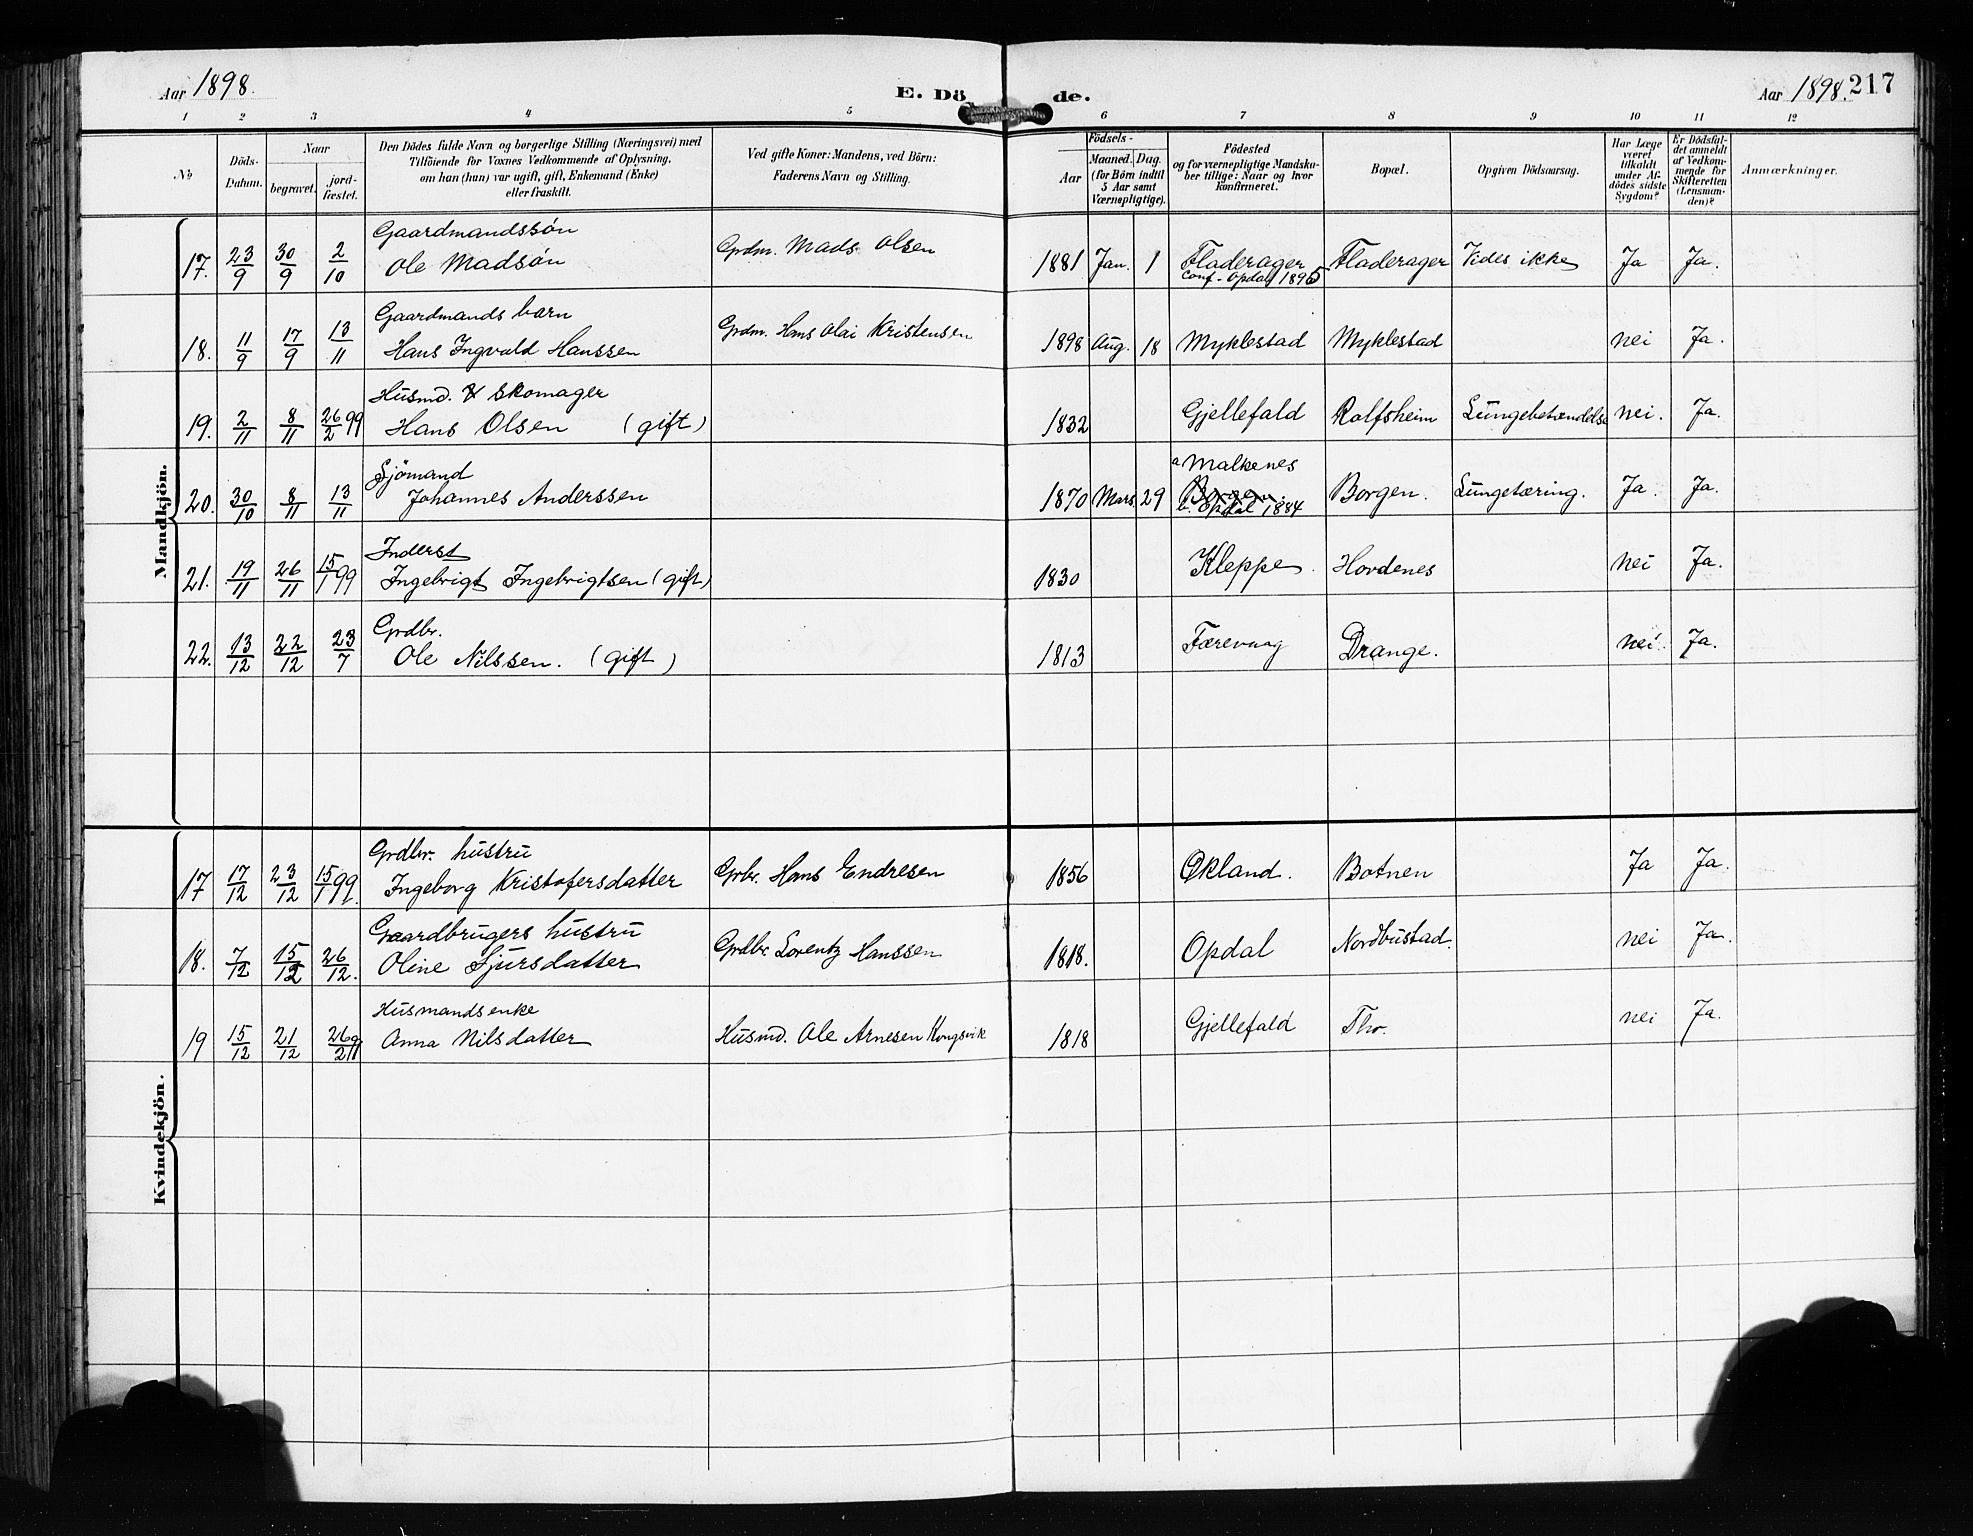 Aar 1898. E. Dö de. Aar 1898. 217
1 2 3 4 5 6 7 8 9 10 11 12
No Döds-Datum. Naar begravet. jord-fæstet. Den Dödes fulde Navn og borgerlige Stilling (Næringsvei) med Tilföiende for Voxnes Vedkommende af Oplysning, om han (hun) var ugift, gift, Enkemand (Enke) eller fraskilt. Ved gifte Koner: Mandens, ved Börn: Faderens Navn og Stilling. Födsels- Aar Maaned. Dag. (for Börn indtil 5 Aar samt Værnepligtige). Födested og for værnepligtige Mandskaber tillige: Naar og hvor konfirmeret. Bopæl. Opgiven Dödsaarsag. Har Læge været tilkaldt under Afdödes sidste Sygdom? Er Dödsfaldet anmeldt af Vedkommende for Skifteretten (Lensmanden)? Anmærkninger.
Mandkjön.
Gaardmandssön
17. 23/9 30/9 2/10 Ole Madsön Grdm. Mads Olsen 1881 Jan. 1 Fladerager Fladerager Vides ikke Ja Ja.
Conf. Opdal 1895
Gaardmands barn
18. 11/9 17/9 13/11 Hans Ingvald Hanssen Grdm. Hans Olai Kristensen 1898 Aug. 18 Myklestad Myklestad nei Ja.
Husmd. & Skomager
19. 2/11 8/11 26/2 99 Hans Olsen (gift) 1832 Gjellefald Rolfsheim Lungebetændelse nei. Ja.
Sjömand a Malkenes
20. 30/10 8/11 13/11 Johannes Anderssen 1870 Mars 29 Borgen Borgen. Lungetæring. Ja. Ja.
b. Opdal 1884
Inderst
21. 19/11 26/11 15/1 99 Ingebrigt Ingebrigtsen (gift) 1830 Kleppe. Hovdenes nei Ja.
Grdbr.
22. 13/12 22/12 23/7 Ole Nilssen. (gift) 1813 Færevaag Drange. nei. Ja.
Kvindekjön.
Grdbr. hustru
17 17/12 23/12 15/1 99. Ingeborg Kristofersdatter Grbr. Hans Endresen 1856 Økland. Botnen Ja Ja.
Gaardbrugers hustru
18. 7/12 15/12 26/12. Oline Sjursdatter Grdbr. Lorentz Hanssen 1818. Opdal Nordbustad. nei Ja.
Husmandsenke
19 15/12 21/12 Anna Nilsdatter Husmd. Ole Arnesen Kongsvik 1818 Gjellefald Tho. nei Ja.